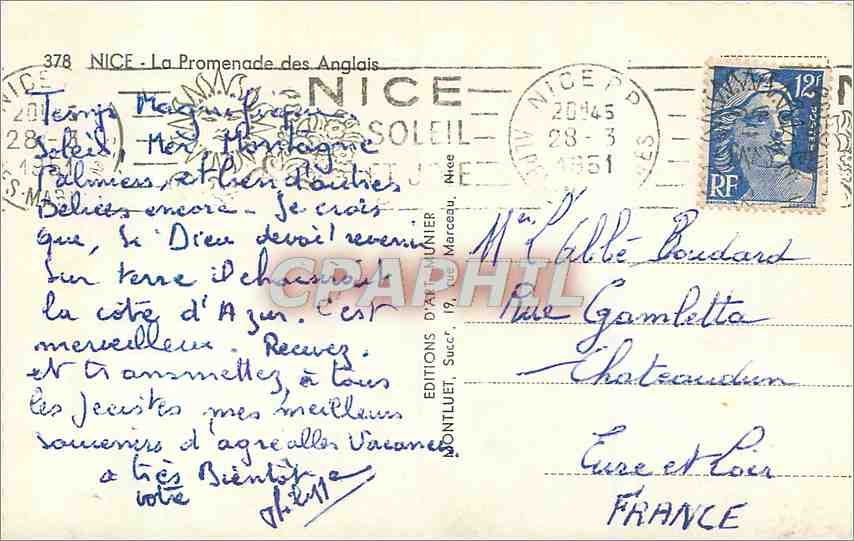 378 NICE - La Promenade des Anglais
NICE
SOLEIL
NICE P.P.
20H45
28 - 3
1951
12F
RF
Temps Magnifique
Soleil, Mer Montagne
Palmiers, et bien d'autres
Délices encore - Je crois
que, Si Dieu devait revenir
sur terre il choisirait
la côte d'Azur. C'est
merveilleux. Recevez.
et transmettez, à tous
les Jecistes mes meilleurs
souvenirs d'agréables Vacances
a très Bientôt
votre
EDITIONS D'ART MUNIER
MONTLUET, Succr, 19, rue Marceau, Nice
Mr L'abbé Boudard
Rue Gambetta
Chateaudun
Eure et Loir
FRANCE
CPAPHIL